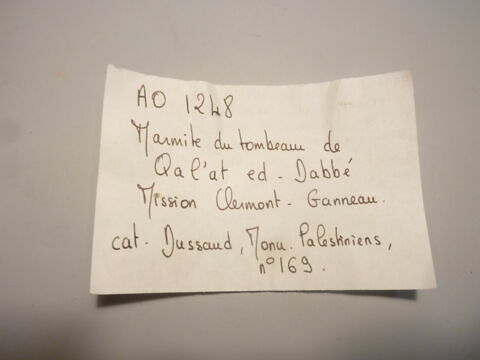 AO 1248
Marmite du tombeau de
Qal'at ed-Dabbé
Mission Clermont-Ganneau.
cat. Dussaud, Monu. Palestiniens,
n° 169.